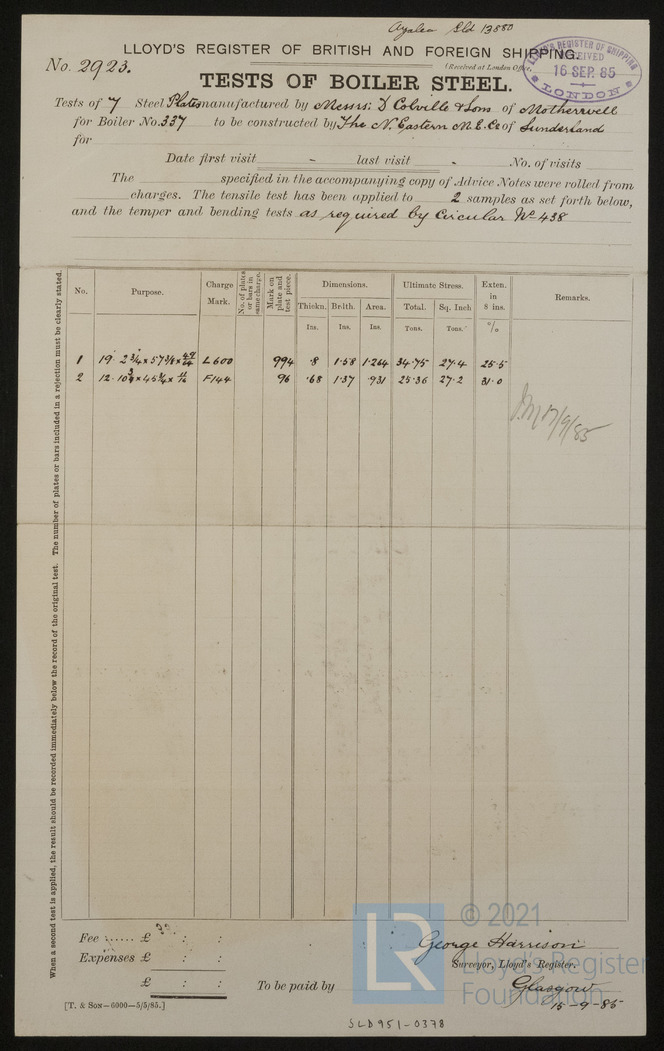 Azalea Sld 13880
LLOYD'S REGISTER OF BRITISH AND FOREIGN SHIPPING.
No. 2923.
(Received at London Office,
LLOYD'S REGISTER OF SHIPPING
RECEIVED
16 SEP. 85
LONDON
TESTS OF BOILER STEEL.
Tests of 7 Steel Plates manufactured by Messrs: D Colville & Sons of Motherwell
for Boiler No. 337 to be constructed by The N. Eastern M. E. Co of Sunderland
for
Date first visit - last visit - No. of visits
The specified in the accompanying copy of Advice Notes were rolled from
charges. The tensile test has been applied to 2 samples as set forth below,
and the temper and bending tests as required by Circular No 438
When a second test is applied, the result should be recorded immediately below the record of the original test. The number of plates or bars included in a rejection must be clearly stated.
No. Purpose. Charge Mark. No. of plates or bars in same charge. Mark on plate and test piece. Dimensions. Ultimate Stress. Exten. in 8 ins. Remarks.
Thickn. Br.lth. Area. Total. Sq. Inch
Ins. Ins. Ins. Tons. Tons. %
1 19· 2 3/4 × 57 3/8 × 49/64 L 600 994 ·8 1·58 1·264 34·75 27·4 25·5
2 12· 10 3/4 × 45 3/4 × 11/16 F144 96 ·68 1·37 ·931 25·36 27·2 31·0
17/9/85
Fee ...... £ : :
Expenses £ : :
£ : :
George Harrison
Surveyor, Lloyd's Register.
To be paid by
Glasgow
15-9-85
[T. & SON—6000—5/5/85.]
SLD951-0378
LR
© 2021
Lloyd's Register
Foundation